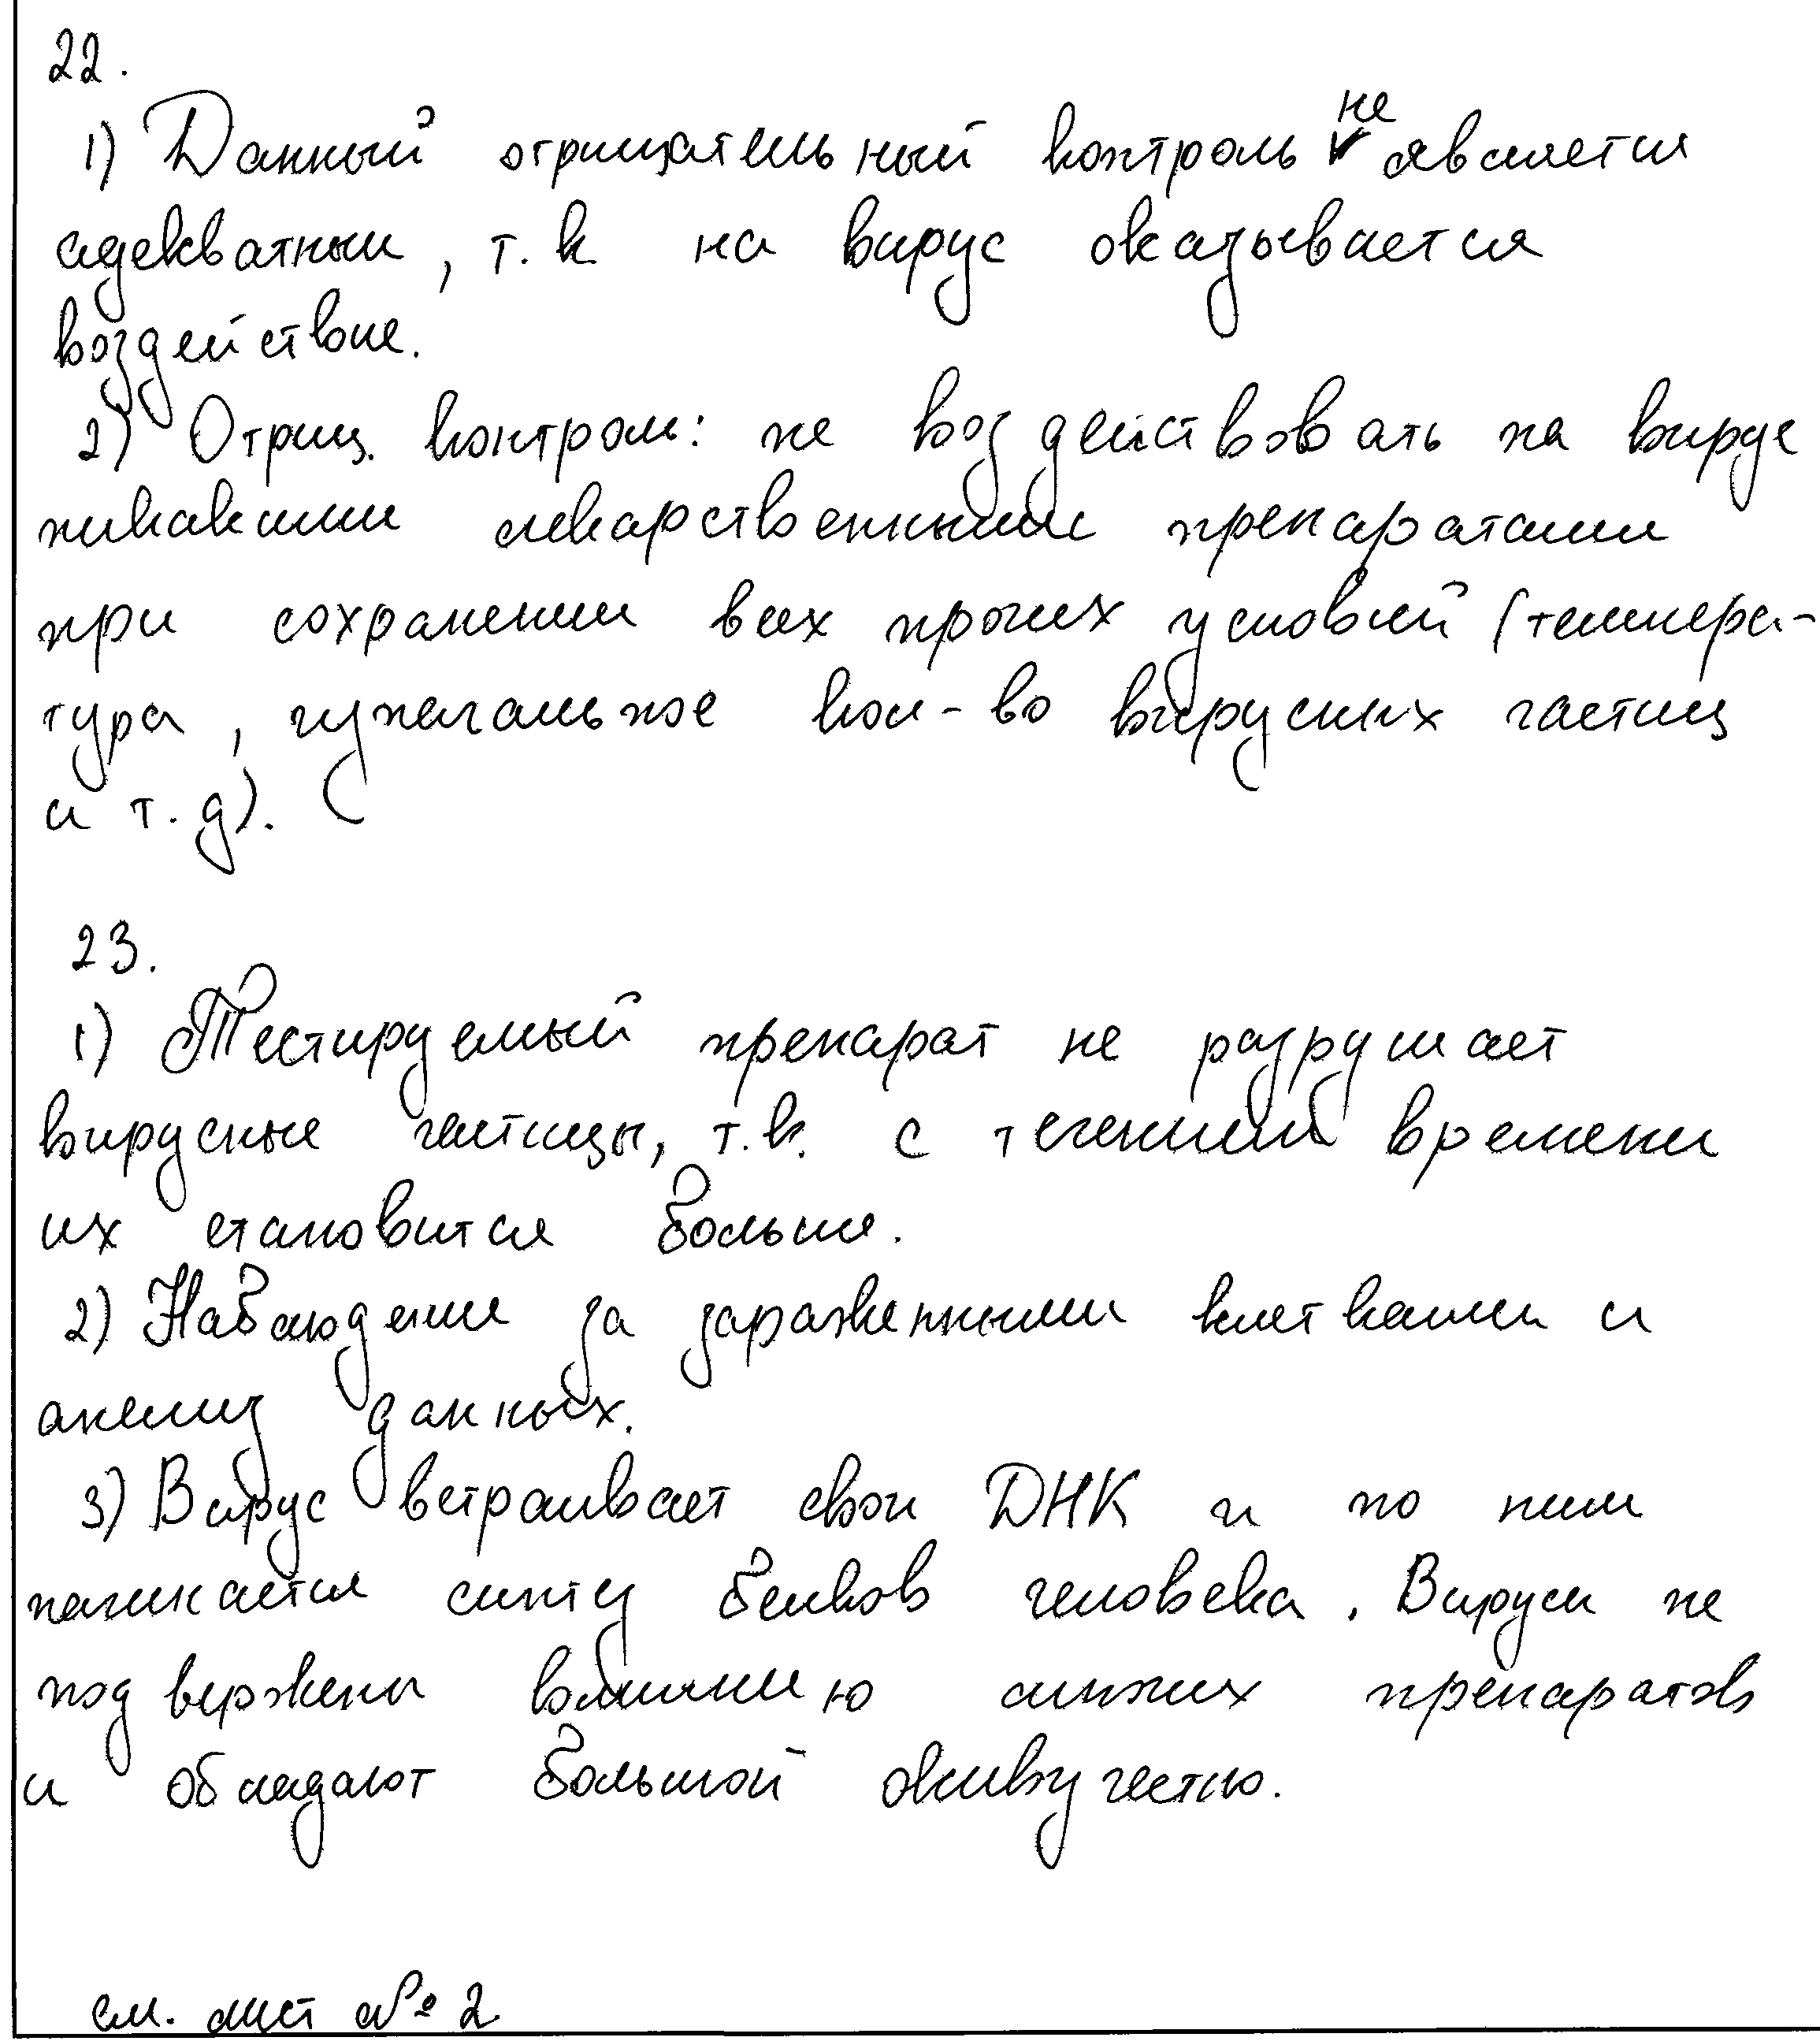 22.
1) Данный отрицательный контроль не является
адекватным, т.к на вирус оказывается
воздействие.
2) Отриц. контроль: не воздействовать на вирус
никакими лекарственными препаратами
при сохранении всех прочих условий (темпера-
тура, изначальное кол-во вирусных частиц
и т.д).
23.
1) Тестируемый препарат не разрушает
вирусные частицы, т.к. с течением времени
их становится больше.
2) Наблюдение за зараженными клетками и
анализ данных.
3) Вирус встраивает свои ДНК и по ним
начинается синтез белков человека. Вирусы не
подвержены влиянию многих препаратов
и обладают большой живучестью.
см. лист № 2